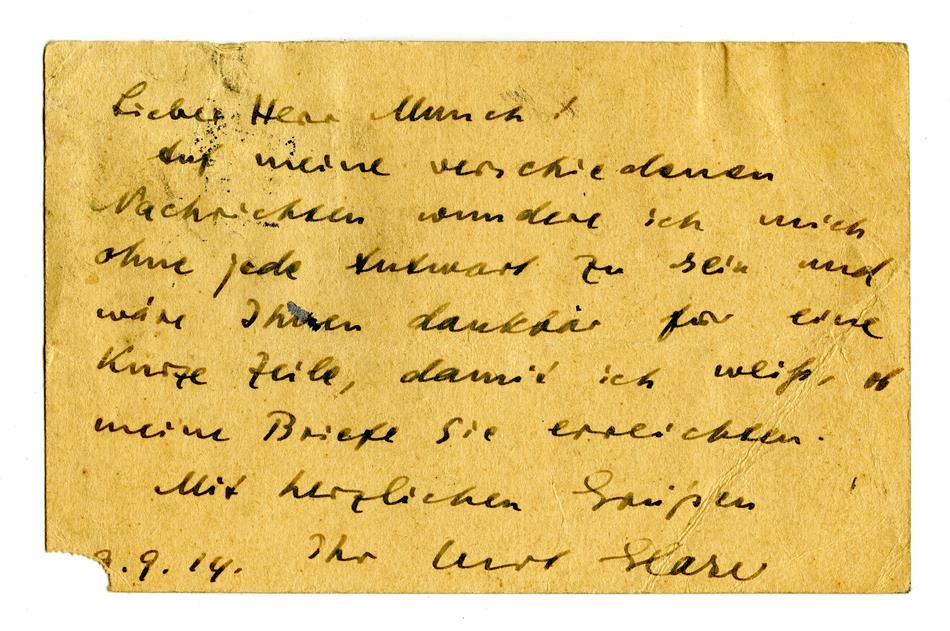 Lieber Herr Munch!
Auf meine verschiedenen
Nachrichten wundere ich mich
ohne jede Antwort zu sein und
wäre Ihnen dankbar für eine
Kurze Zeile, damit ich weiß, ob
meine Briefe Sie erreichten.
Mit herzlichen Grüßen
.9.14. Ihr Curt Glaser